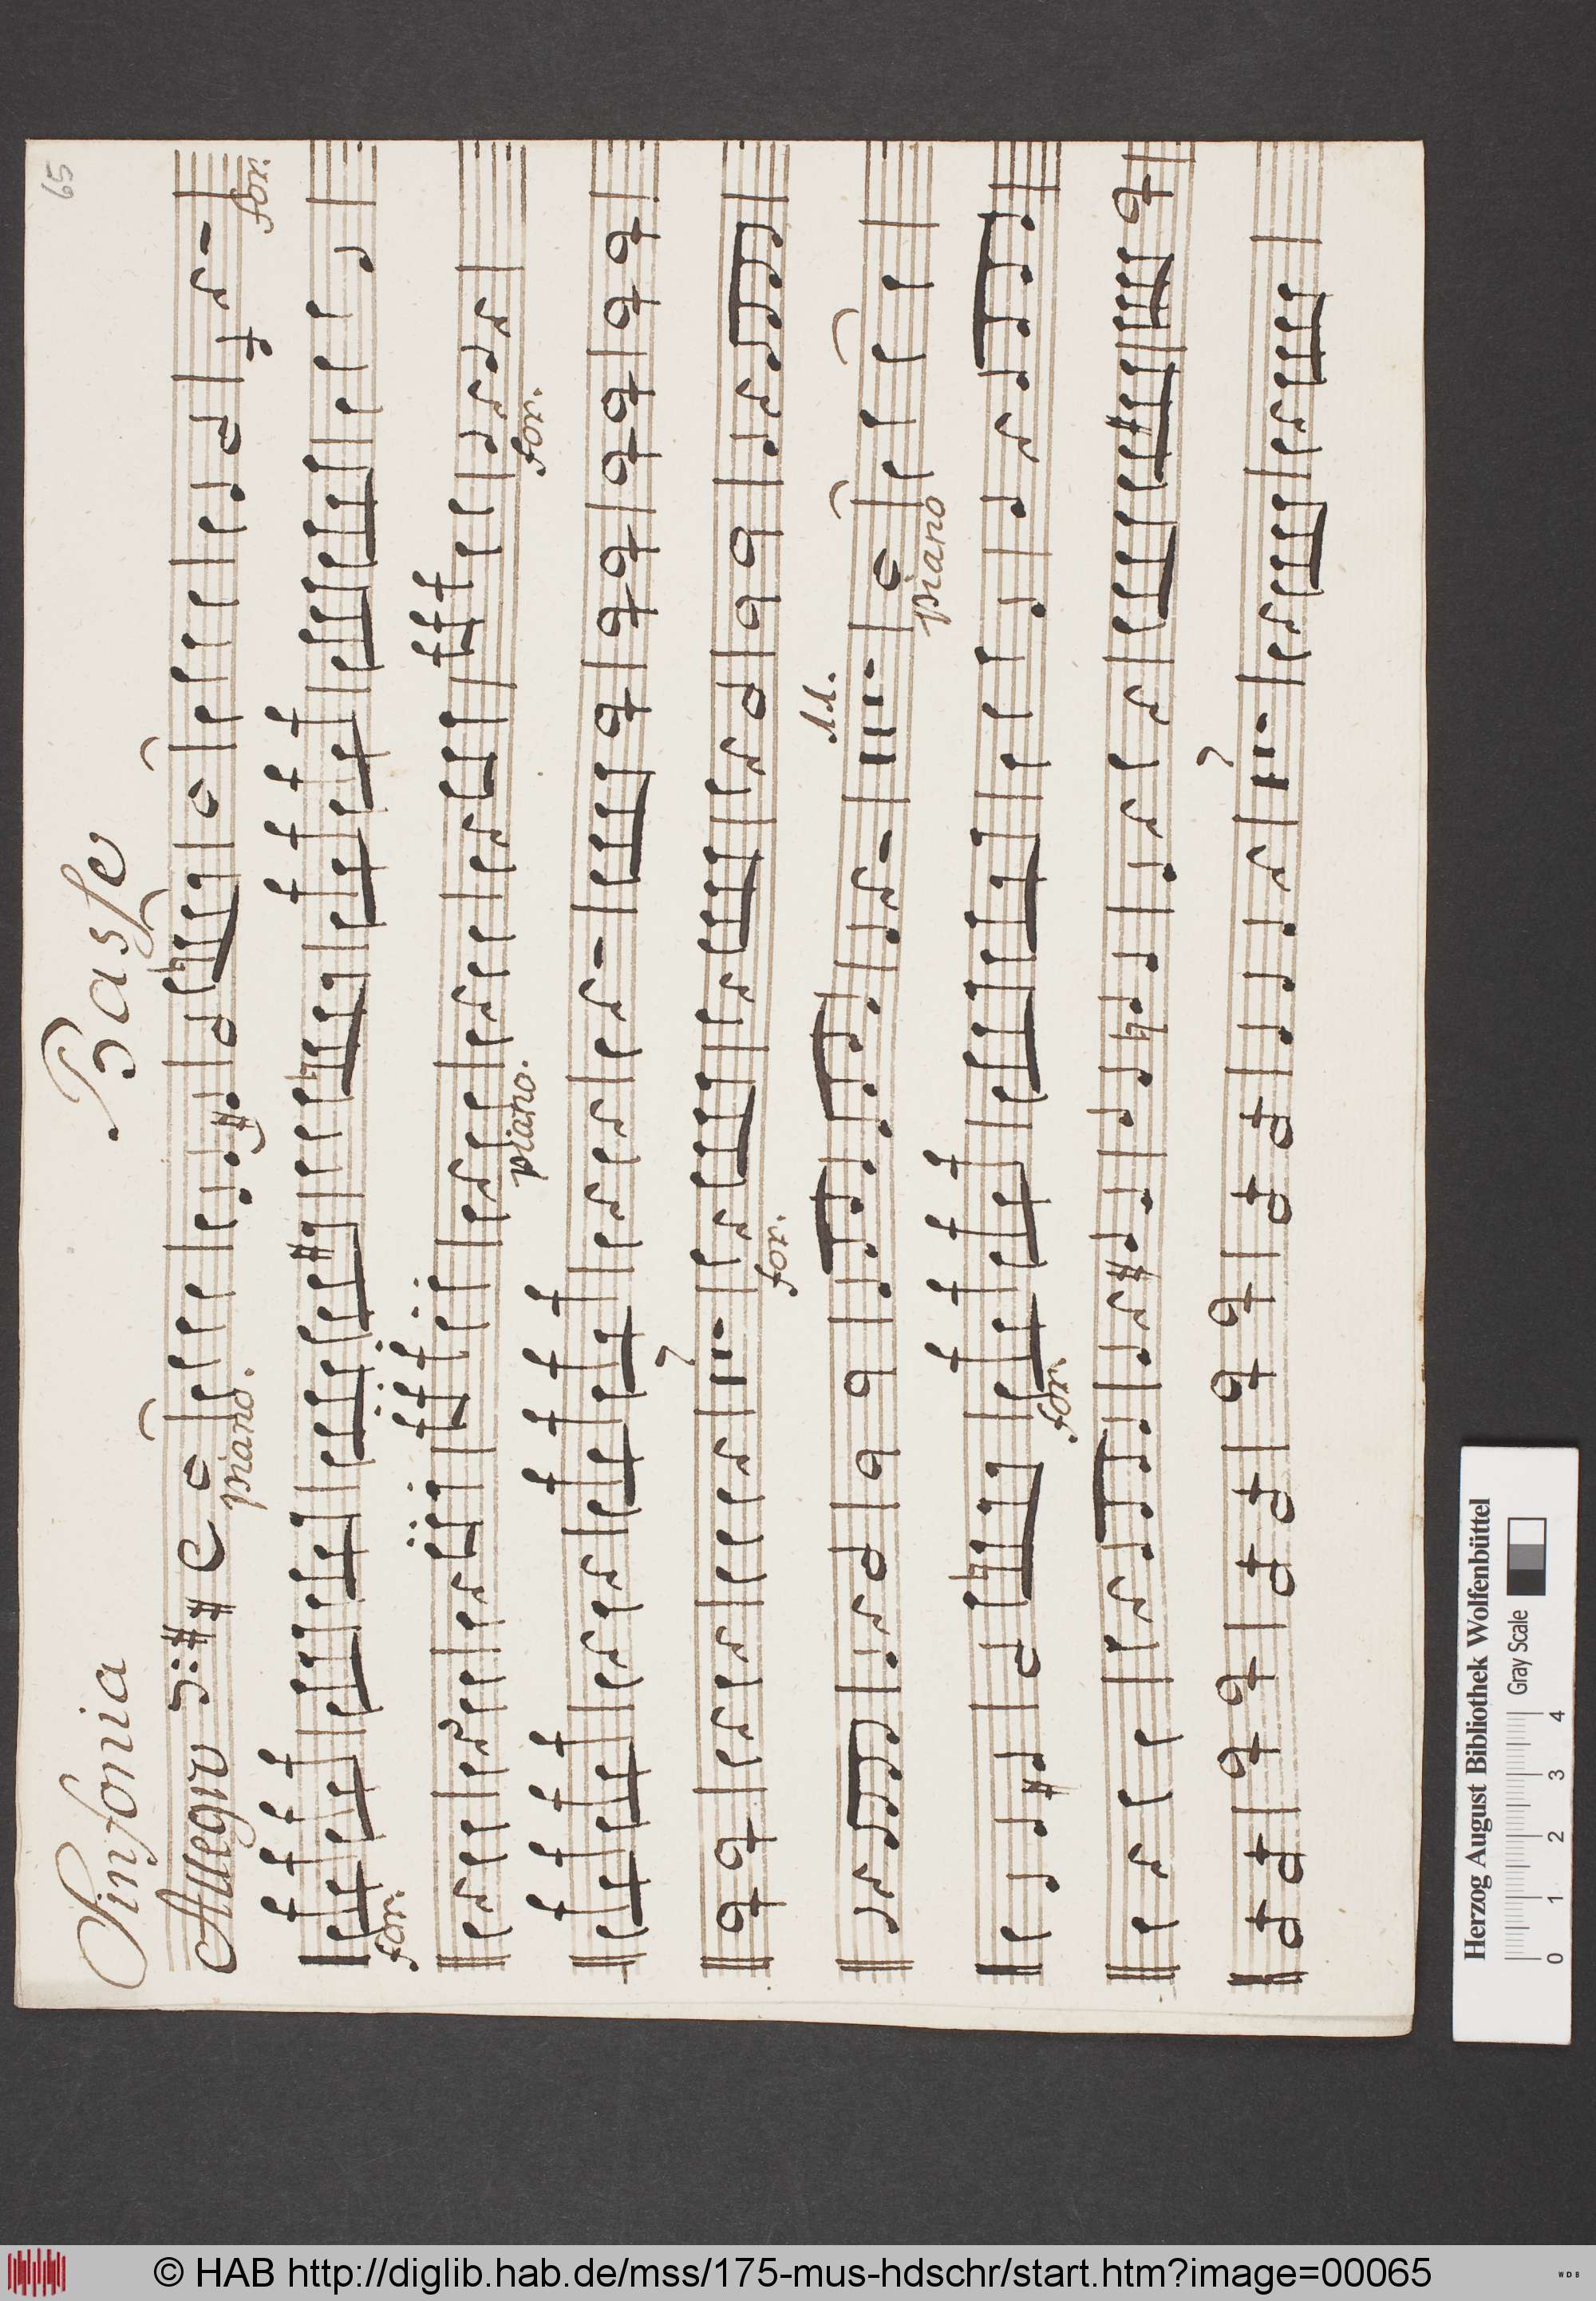 65
Sinfonia Basse
Allegro
piano.
for.
for.
piano.
for.
7
for.
11.
piano
for.
7
Herzog August Bibliothek Wolfenbüttel
0 1 2 3 4 Gray Scale
© HAB http://diglib.hab.de/mss/175-mus-hdschr/start.htm?image=00065
WDB